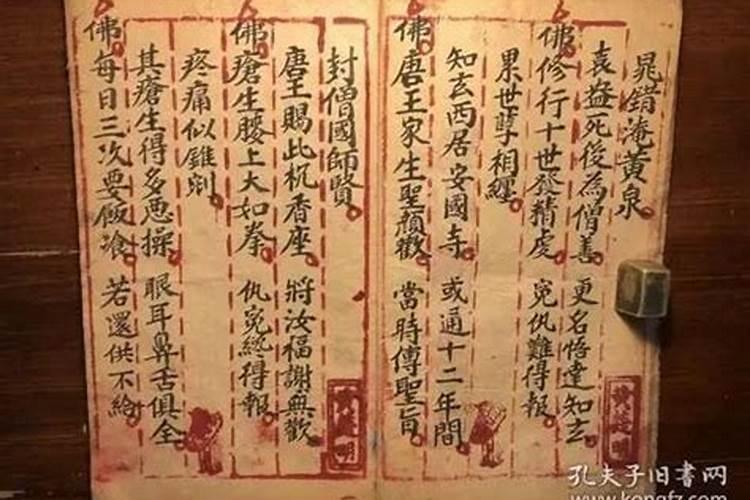 晁錯淹黄泉
袁益死後為僧善 更名悟達知玄
佛修行十世發精虔 冤仇難得報
累世孽相纏
知玄西居安國寺 或通十二年間
佛唐王家生聖顏歡 當時傳聖旨
封僧國師賢
唐王賜此杋香座 將汝福謝無歡
佛瘡生腰上大如拳 仇冤總得報
疼痛似錐剜
其瘡生得多悪操 眼耳鼻舌俱全
佛每日三次要飯飡 若還供不給
孔夫子旧书网